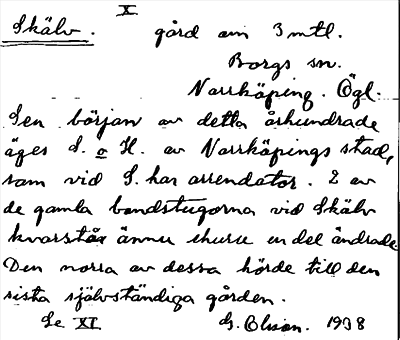 X
Skälv. gård om 3 mtl.
Borgs sn.
Norrköping. Ögl.
Sen början av detta århundrade
äges S. o H. av Norrköpings stad,
som vid S. har arrendator. 2 av
de gamla bondstugorna vid Skälv
kvarstår ännu ehuru en del ändrade
Den norra av dessa hörde till den
sista självständiga gården.
Se XI G. Olsson. 1938